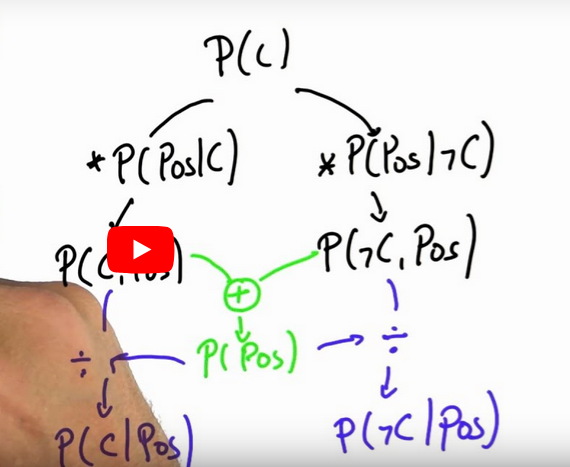 P(C)
*P(Pos|C) *P(Pos|¬C)
P(C,Pos) P(¬C,Pos)
+
P(Pos)
÷ ÷
P(C|Pos) P(¬C|Pos)